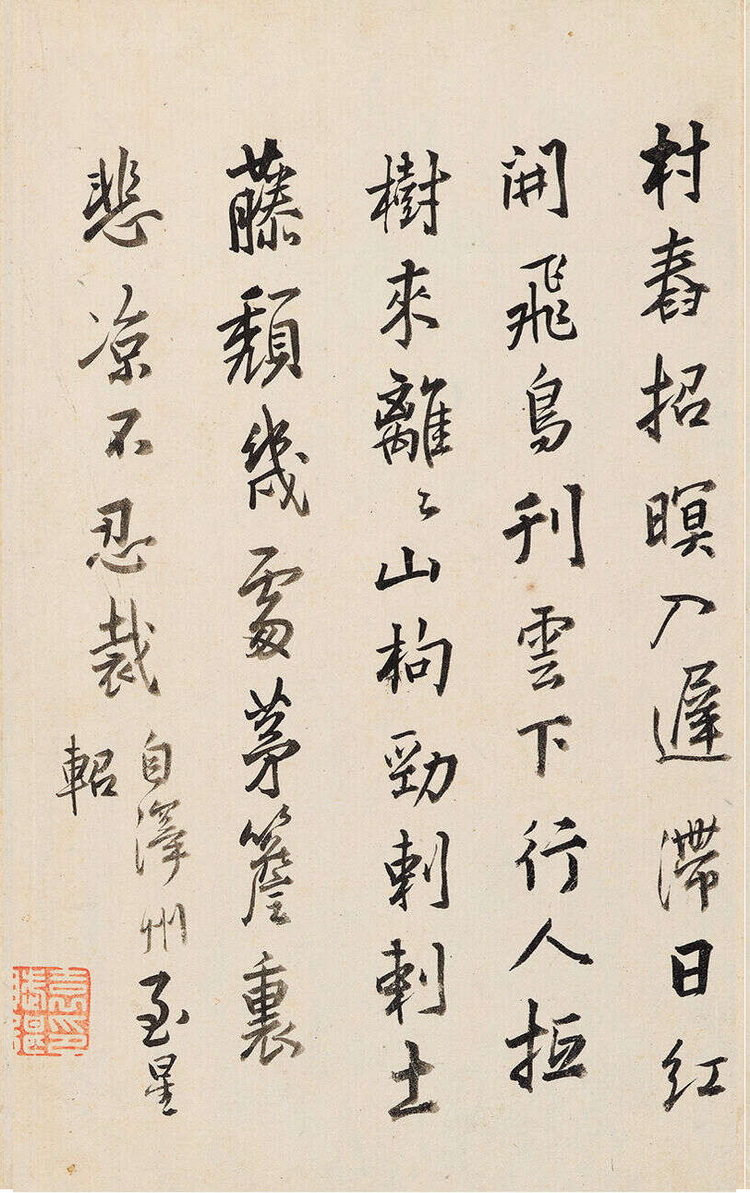 村舂招暝入遲滯日紅
開飛鳥刊雲下行人拒
樹來離〻山枸勁剌剌土
藤頹幾處茅簷裏
悲凉不忍裁
自澤州至星
軺